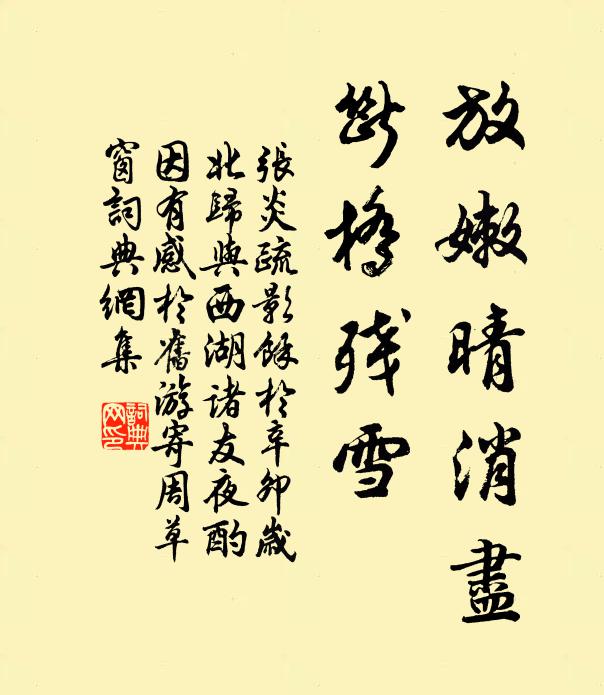 放嫩晴消盡
斷橋残雪
張炎疏影餘於辛卯歲
北歸與西湖諸友夜酌
因有感於舊游寄周草
窗詞典網集
詞典
网印